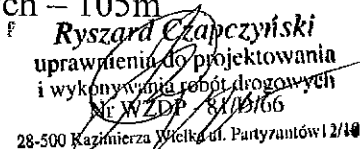 ch – 105m
Ryszard Czapczyński
uprawnienia do projektowania
i wykonywania robót drogowych
Nr WZDP - 81/D/66
28-500 Kazimierza Wielka ul. Partyzantów 12/10